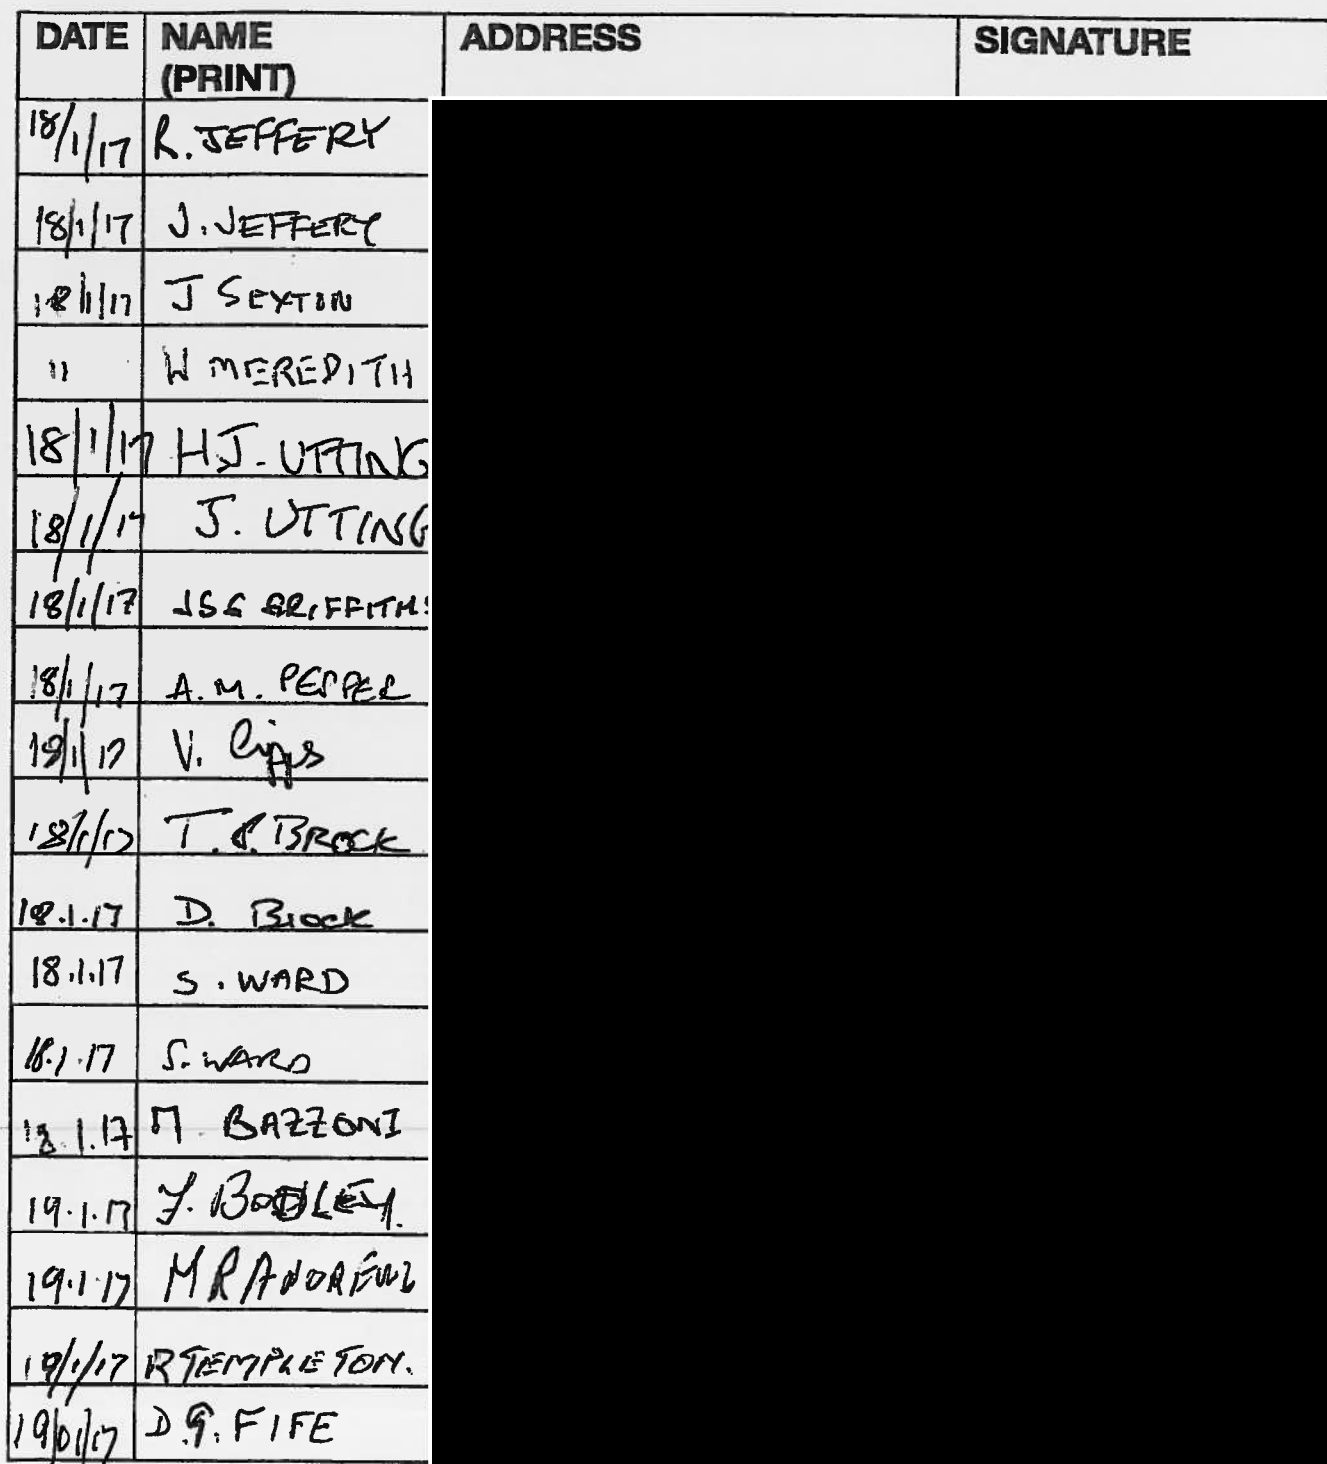 DATE NAME ADDRESS SIGNATURE
(PRINT)
18/1/17 R. JEFFERY
18/1/17 J. JEFFERY
18/1/17 J SEXTON
" W MEREDITH
18/1/17 H J. UTTING
18/1/17 J. UTTING
18/1/17 GRIFFITHS
18/1/17 A. M. PEPPER
18/1/17 V.
18/1/17 T. BROCK
18.1.17 D. Brock
18.1.17 S. WARD
18.1.17 S. WARD
18.1.17 M BAZZONI
19.1.17 BODLEY.
19.1.17 MR ANDREWS
19/1/17 R TEMPLETON.
19/01/17 D.G. FIFE